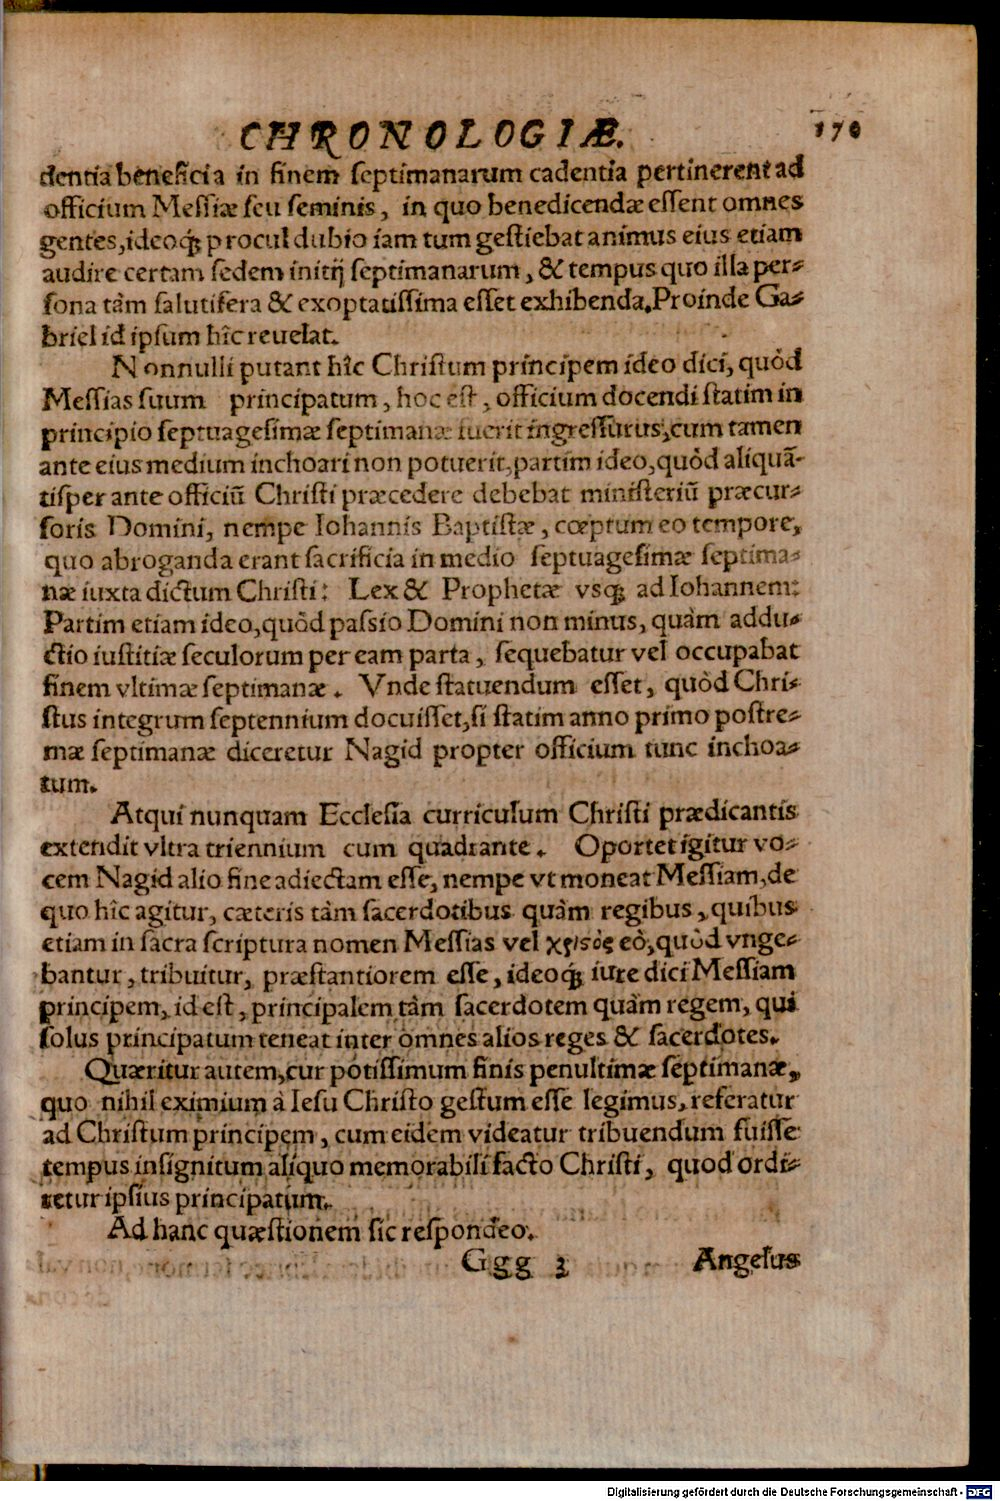 CHRONOLOGIÆ. 170
dentia beneficia in finem septimanarum cadentia pertinerent ad
officium Messiæ seu seminis, in quo benedicendæ essent omnes
gentes, ideoq́; procul dubio iam tum gestiebat animus eius etiam
audire certam sedem initij septimanarum, & tempus quo illa per-
sona tàm salutifera & exoptatissima esset exhibenda. Proinde Ga-
briel id ipsum hîc reuelat.
Nonnulli putant hîc Christum principem ideo dici, quòd
Messias suum principatum, hoc est, officium docendi statim in
principio septuagesimæ septimanæ fuerit ingressurus, cum tamen
ante eius medium inchoari non potuerit, partim ideo, quòd aliquã-
tisper ante officiũ Christi præcedere debebat ministeriũ præcur-
soris Domini, nempe Iohannis Baptistæ, cœptum eo tempore,
quo abroganda erant sacrificia in medio septuagesimæ septima-
næ iuxta dictum Christi: Lex & Prophetæ vsq; ad Iohannem:
Partim etiam ideo, quòd passio Domini non minus, quàm addu-
ctio iustitiæ seculorum per eam parta, sequebatur vel occupabat
finem vltimæ septimanæ. Vnde statuendum esset, quòd Chri-
stus integrum septennium docuisset, si statim anno primo postre-
mæ septimanæ diceretur Nagid propter officium tunc inchoa-
tum.
Atqui nunquam Ecclesia curriculum Christi prædicantis
extendit vltra triennium cum quadrante. Oportet igitur vo-
cem Nagid alio fine adiectam esse, nempe vt moneat Messiam, de
quo hîc agitur, cæteris tàm sacerdotibus quàm regibus, quibus
etiam in sacra scriptura nomen Messias vel χριστὸς eò, quòd vnge-
bantur, tribuitur, præstantiorem esse, ideoq́; iure dici Messiam
principem, id est, principalem tàm sacerdotem quàm regem, qui
solus principatum teneat inter omnes alios reges & sacerdotes.
Quæritur autem, cur potissimum finis penultimæ septimanæ,
quo nihil eximium à Iesu Christo gestum esse legimus, referatur
ad Christum principem, cum eidem videatur tribuendum fuisse
tempus insignitum aliquo memorabili facto Christi, quod ordi-
retur ipsius principatum.
Ad hanc quæstionem sic respondeo.
Ggg 3 Angelus
Digitalisierung gefördert durch die Deutsche Forschungsgemeinschaft - DFG